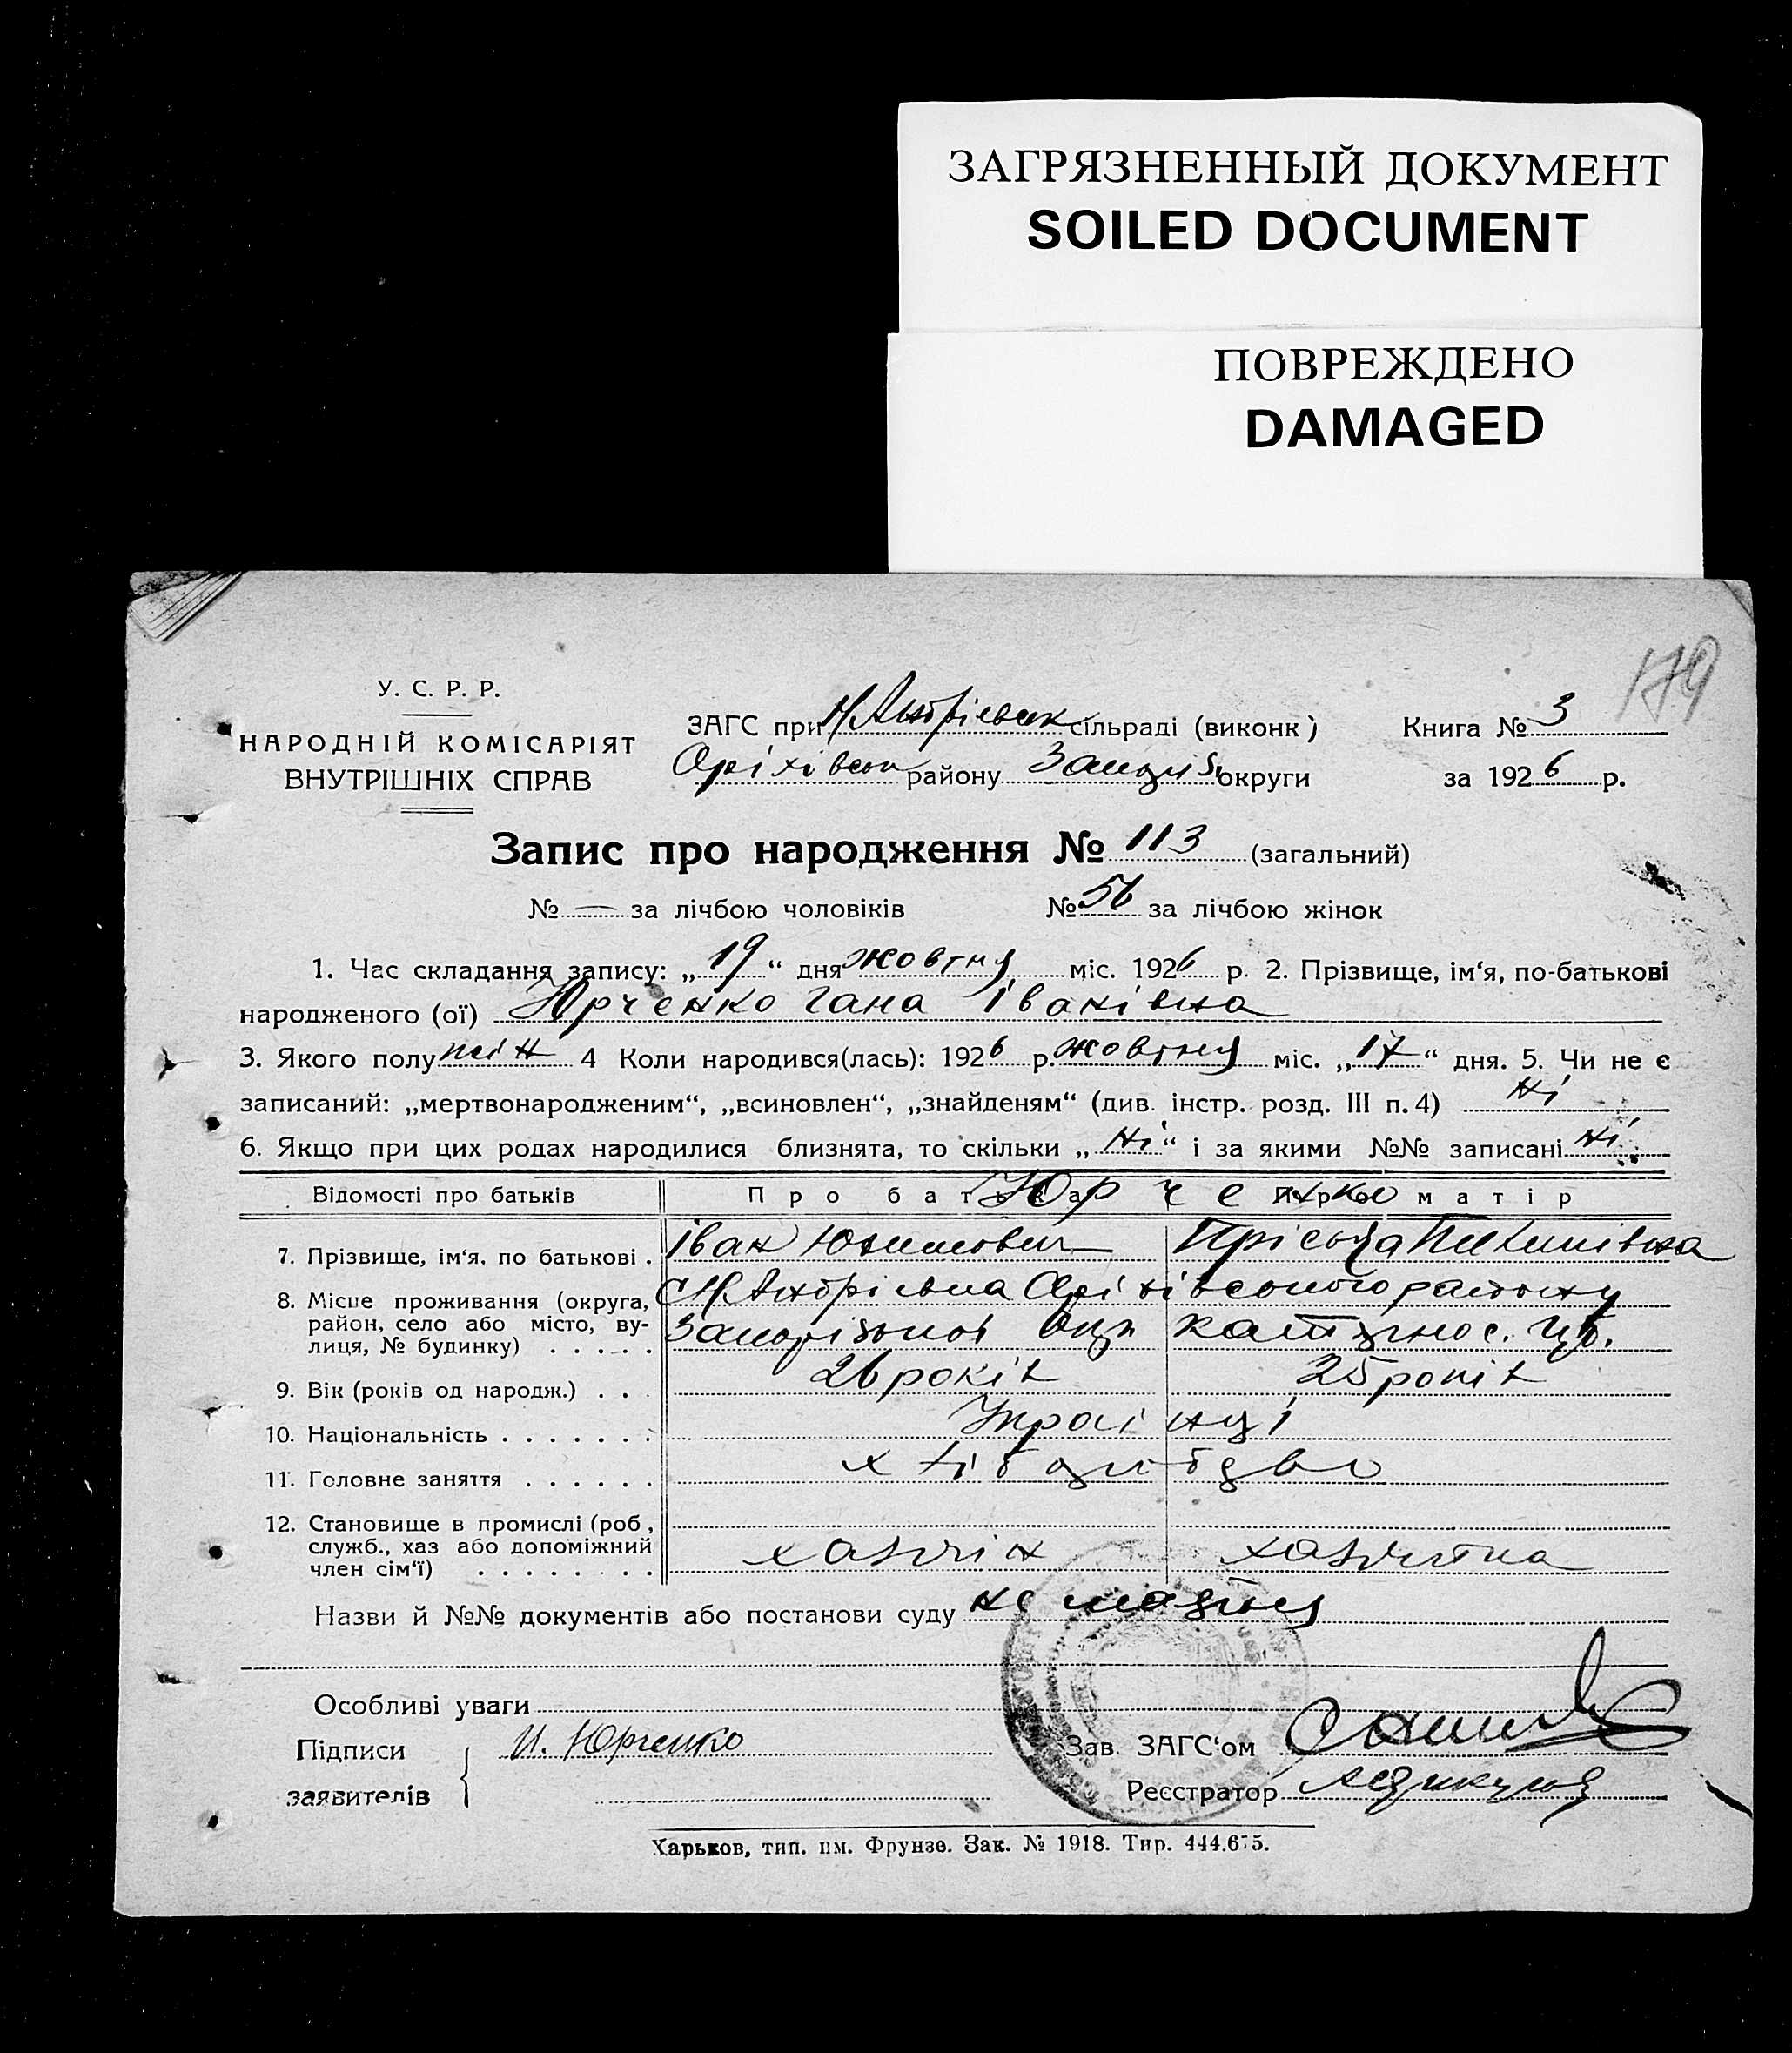 ЗАГРЯЗНЕННЫЙ ДОКУМЕНТ
SOILED DOCUMENT
ПОВРЕЖДЕНО
DAMAGED
179
У. С. Р. Р.
НАРОДНІЙ КОМІСАРІЯТ
ВНУТРІШНІХ СПРАВ
ЗАГС при Н Андрієвск сільраді (виконк)
Книга № 3
Оріхівськ району Запоріз. округи
за 1926 р.
Запис про народження № 113 (загальний)
№ — за лічбою чоловіків № 56 за лічбою жінок
1. Час складання запису: „19“ дня жовтня міс. 1926 р. 2. Прізвище, ім‘я, по-батькові
народженого (ої) Юрченко Гана Іванівна
3. Якого полу жін 4 Коли народився(лась): 1926 р. жовтня міс. „17“ дня. 5. Чи не є
записаний: „мертвонародженим“, „всиновлен“, „знайденям“ (див. інстр. розд. III п. 4) Ні
6. Якщо при цих родах народилися близнята, то скільки „Ні“ і за якими №№ записані ні
Відомості про батьків Про батька Про матір
Юрченко
7. Прізвище, ім‘я, по батькові . Іван Юхимович Пріська
8. Місце проживання (округа, район, село або місто, вулиця, № будинку) . . . . . с Н Андрієвка Оріхівського району
Запорізької
9. Вік (років од народж.) . . . 26 років 25 років
10. Національність . . . . . . . Українці
11. Головне заняття . . . . . . хліборобство
12. Становище в промислі (роб, служб., хаз або допоміжний член сім‘ї) . . . . . . . . хазяїн хазяйка
Назви й №№ документів або постанови суду не мається
Особливі уваги
Підписи заявителів И. Юрченко
Зав. ЗАГС‘ом
Реєстратор
Харьков, тип. им. Фрунзе. Зак. № 1918. Тир. 444.675.